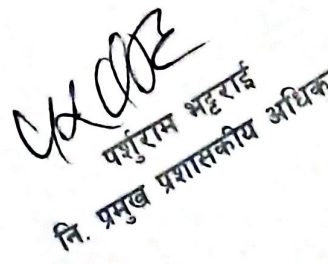 पर्शुराम भट्टराई
नि. प्रमुख प्रशासकीय अधिक